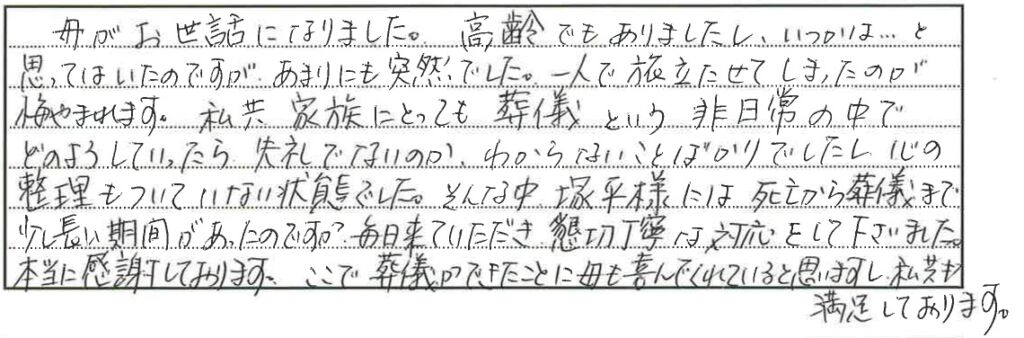 母がお世話になりました。高齢でもありましたし、いつかは…と
思ってはいたのですが、あまりにも突然でした。一人で旅立たせてしまったのが
悔やまれます。私共家族にとっても葬儀という非日常の中で
どのようしていったら失礼でないのか、わからないことばかりでしたし心の
整理もついていない状態でした。そんな中塚平様には死亡から葬儀まで
少し長い期間があったのですが、毎日来ていただき懇切丁寧な対応をして下さいました。
本当に感謝しております。ここで葬儀ができたことに母も喜んでくれていると思いますし、私共も
満足しております。